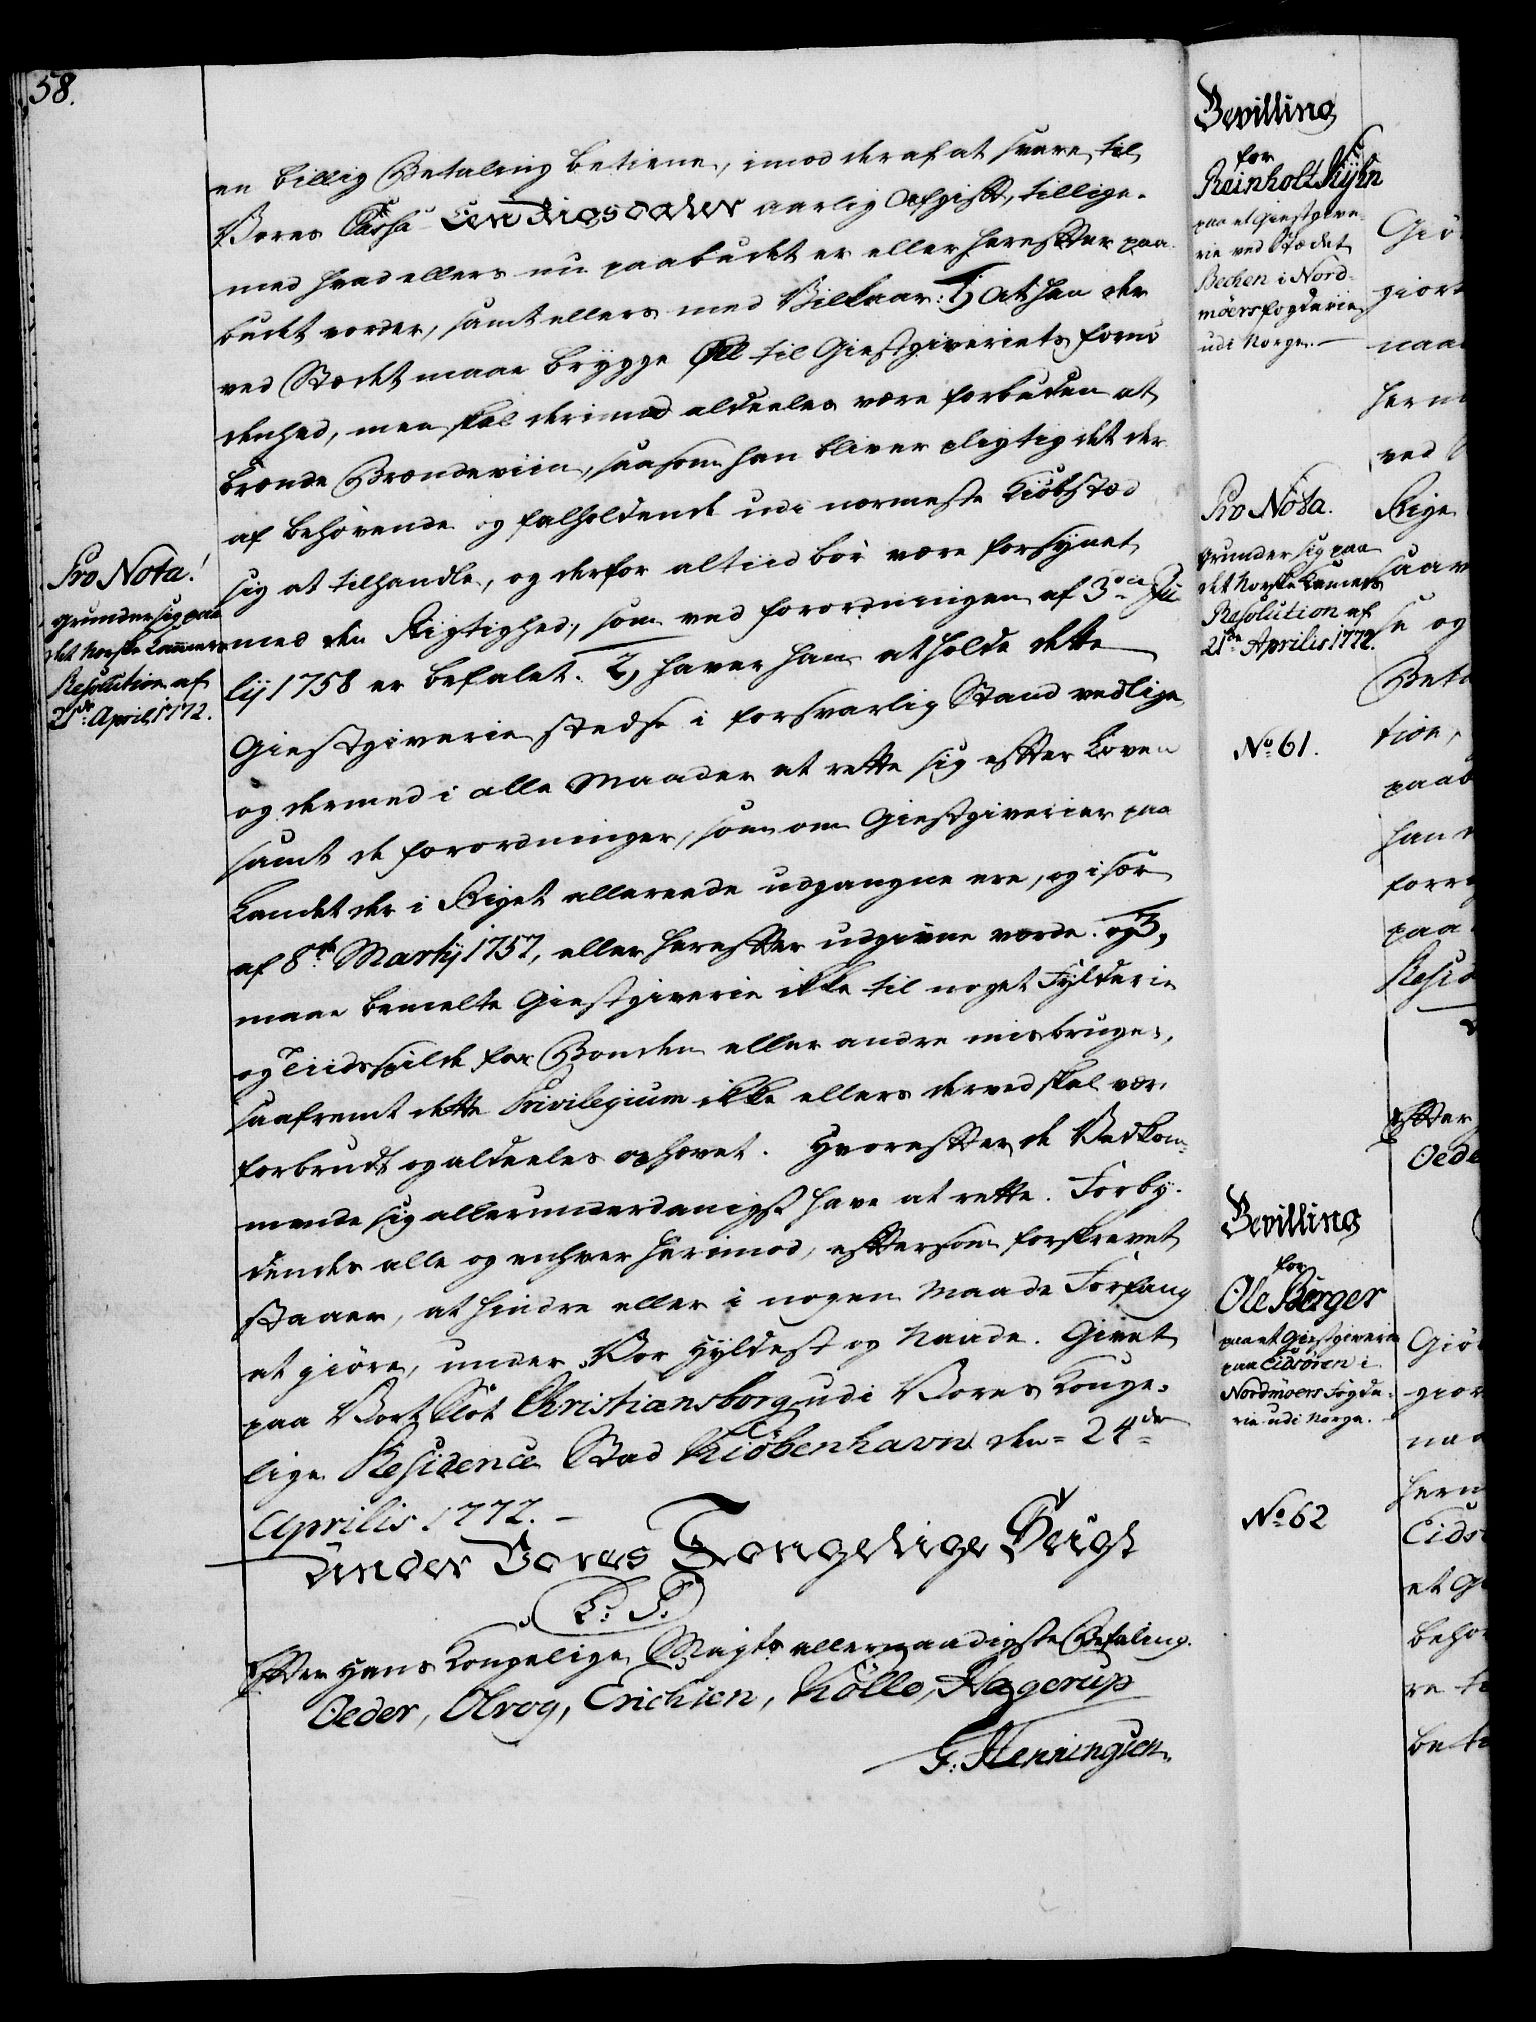 58.
en billig Betaling betiene, imod deraf at svare til
Vores Cassa Een Rigsdaler aarlig Afgift, tillige-
med hvad ellers nu paabudet er eller herefter paa-
budet vorder, samt ellers med Vilkaar: 1, At han der
ved Stædet maae brygge Øll til Giestgiveriets fornø-
denhed, men skal derimod aldeeles være forbuden at
brænde Brændeviin, saasom han bliver pligtig det der-
af behøvende og falholdende udi nærmeste Kiøbstæd
sig at tilhandle, og derfor altiid bør være forsynet
med den Rigtighed, som ved forordningen af 3die Ju-
lij 1758 er befalet. 2, haver han at holde dette
Giestgiverie stedse i forsvarlig Stand vedlige
og dermed i alle Maader at rette sig efter Loven
samt de forordninger, som om Giestgiverier paa
Landet der i Riget allereede udgangne ere, og i sær
af 8de Martij 1757, eller herefter udgivne vorde. og 3,
maae bemelte Giestgiverie ikke til noget Fylderie
og Tiidsspilde for Bonden eller andre misbruges,
saafremt dette Privilegium ikke ellers derved skal være
forbrudt og aldeeles ophævet. Hvorefter de Vedkom-
mende sig allerunderdanigst have at rette. Forby-
dendes alle og enhver herimod, eftersom forskrevet
staaer, at hindre eller i nogen Maade Forfang
at giøre, under Vor Hyldest og Naade. Givet
paa Vort Slot Christiansborg udi Vores Konge-
lige Residence Stad Kiøbenhavn den 24de
Aprilis 1772.
Under Vores Kongelige Seigl
L: S:
Efter Hans Kongelige Mayts allernaadigste Befaling.
Oeder, Olrog, Erichsen, Kölle, Hagerup
G: Henningsen.
Pro Nota!
grunder sig paa
det Norske Kammers
Resolution af
21de April 1772.
Bevilling
for
Reinholt Kyhn
paa et Giestgive-
rie ved Stædet
Bechen i Nord-
møers fogderie
udi Norge.
Pro Nota.
Grunder sig paa
det Norske Kamers
Resolution af
21de Aprilis 1772.
No 61.
Bevilling
for
Ole Berger
paa et Giestgiverie
paa Eidsøren i
Nordmøers Fogde-
rie udi Norge.
No 62
Giø
giort
naa
herm
ved
Rige
saav
se og
Beta
tion,
paab
han
forr
paa
Resid
Efter
Oede
Giø
gior
naa
herm
Eids
et Gi
beho
re